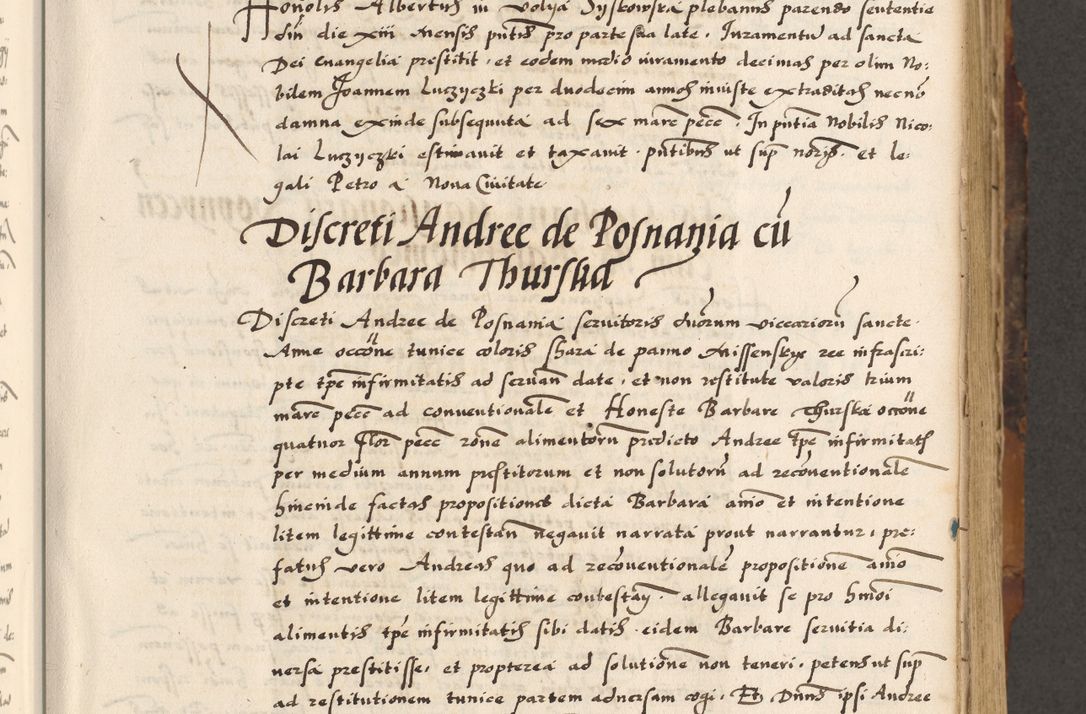 Honolis Albertus in Volya Dyskowska plebanus parendo sententie
diffi die xiii mensis pntis pro parte sua late. Iuramentu ad sancta
Dei euangelia prestitit, et eodem medio iuramento decimas per olim No:
bilem Joannem Luczyczki per duodecim annos iniuste extraditas necno
damna exinde subsequuta ad sex marc pecc. In pntia Nobilis Nico:
lai Luczyczki estimauit et taxauit. pntibus ut sup noris. et le:
gali Petro a Noua Ciuitate
Discreti Andree de Posnania cu
Barbara Thurska
Discreti Andree de Posnania seruitoris duorum viccarioru sancte
Anne occone tunice coloris shara de panno Missenskye ree infrascri:
pte tpe infirmitatis ad seruan date, et non restitute valoris trium
marc pecc ad conuentionale et Honeste Barbare Thurska occone
quatuor flor pecc rone alimentoru predicto Andree tpe infirmitatis
per medium annum prestitorum et non solutoru ad reconuentionale
hincinde factas propositiones dicta Barbara anio et intentione
litem legittime contestan negauit narrata prout narrantur, pre:
fatus vero Andreas quo ad reconuentionale propositione anio
et intentione litem legittime contestan. allegauit se pro hmoi
alimentis tpe infirmitatis sibi datis. eidem Barbare seruitia di:
uersa prestitisse, et propterea ad solutione non teneri, petens ut sup
ad restitutionem tunice partem aduersam cogi. Et Dnus ipsi Andree